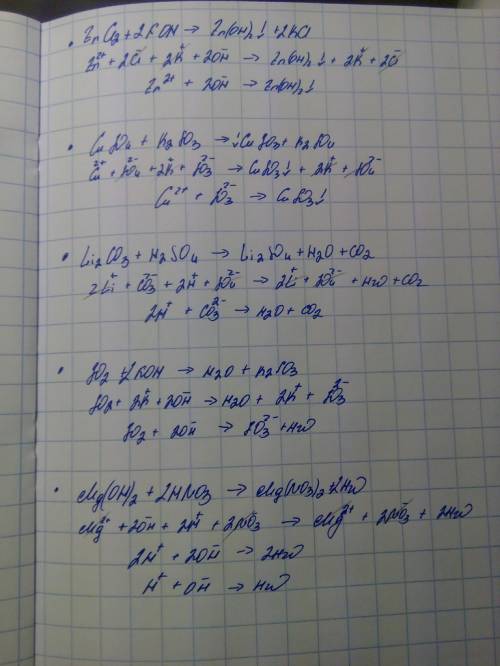 • ZnCl₂ + 2KOH → Zn(OH)₂↓ + 2KCl
Zn²⁺ + 2Cl⁻ + 2K⁺ + 2OH⁻ → Zn(OH)₂↓ + 2K⁺ + 2Cl⁻
Zn²⁺ + 2OH⁻ → Zn(OH)₂↓
• CuSO₄ + K₂SO₃ → ↓CuSO₃ + K₂SO₄
Cu²⁺ + SO₄²⁻ + 2K⁺ + SO₃²⁻ → CuSO₃↓ + 2K⁺ + SO₄²⁻
Cu²⁺ + SO₃²⁻ → CuSO₃↓
• Li₂CO₃ + H₂SO₄ → Li₂SO₄ + H₂O + CO₂
2Li⁺ + CO₃²⁻ + 2H⁺ + SO₄²⁻ → 2Li⁺ + SO₄²⁻ + H₂O + CO₂
2H⁺ + CO₃²⁻ → H₂O + CO₂
• SO₂ + 2KOH → H₂O + K₂SO₃
SO₂ + 2K⁺ + 2OH⁻ → H₂O + 2K⁺ + SO₃²⁻
SO₂ + 2OH⁻ → SO₃²⁻ + H₂O
• Mg(OH)₂ + 2HNO₃ → Mg(NO₃)₂ + 2H₂O
Mg²⁺ + 2OH⁻ + 2H⁺ + 2NO₃⁻ → Mg²⁺ + 2NO₃⁻ + 2H₂O
2H⁺ + 2OH⁻ → 2H₂O
H⁺ + OH⁻ → H₂O